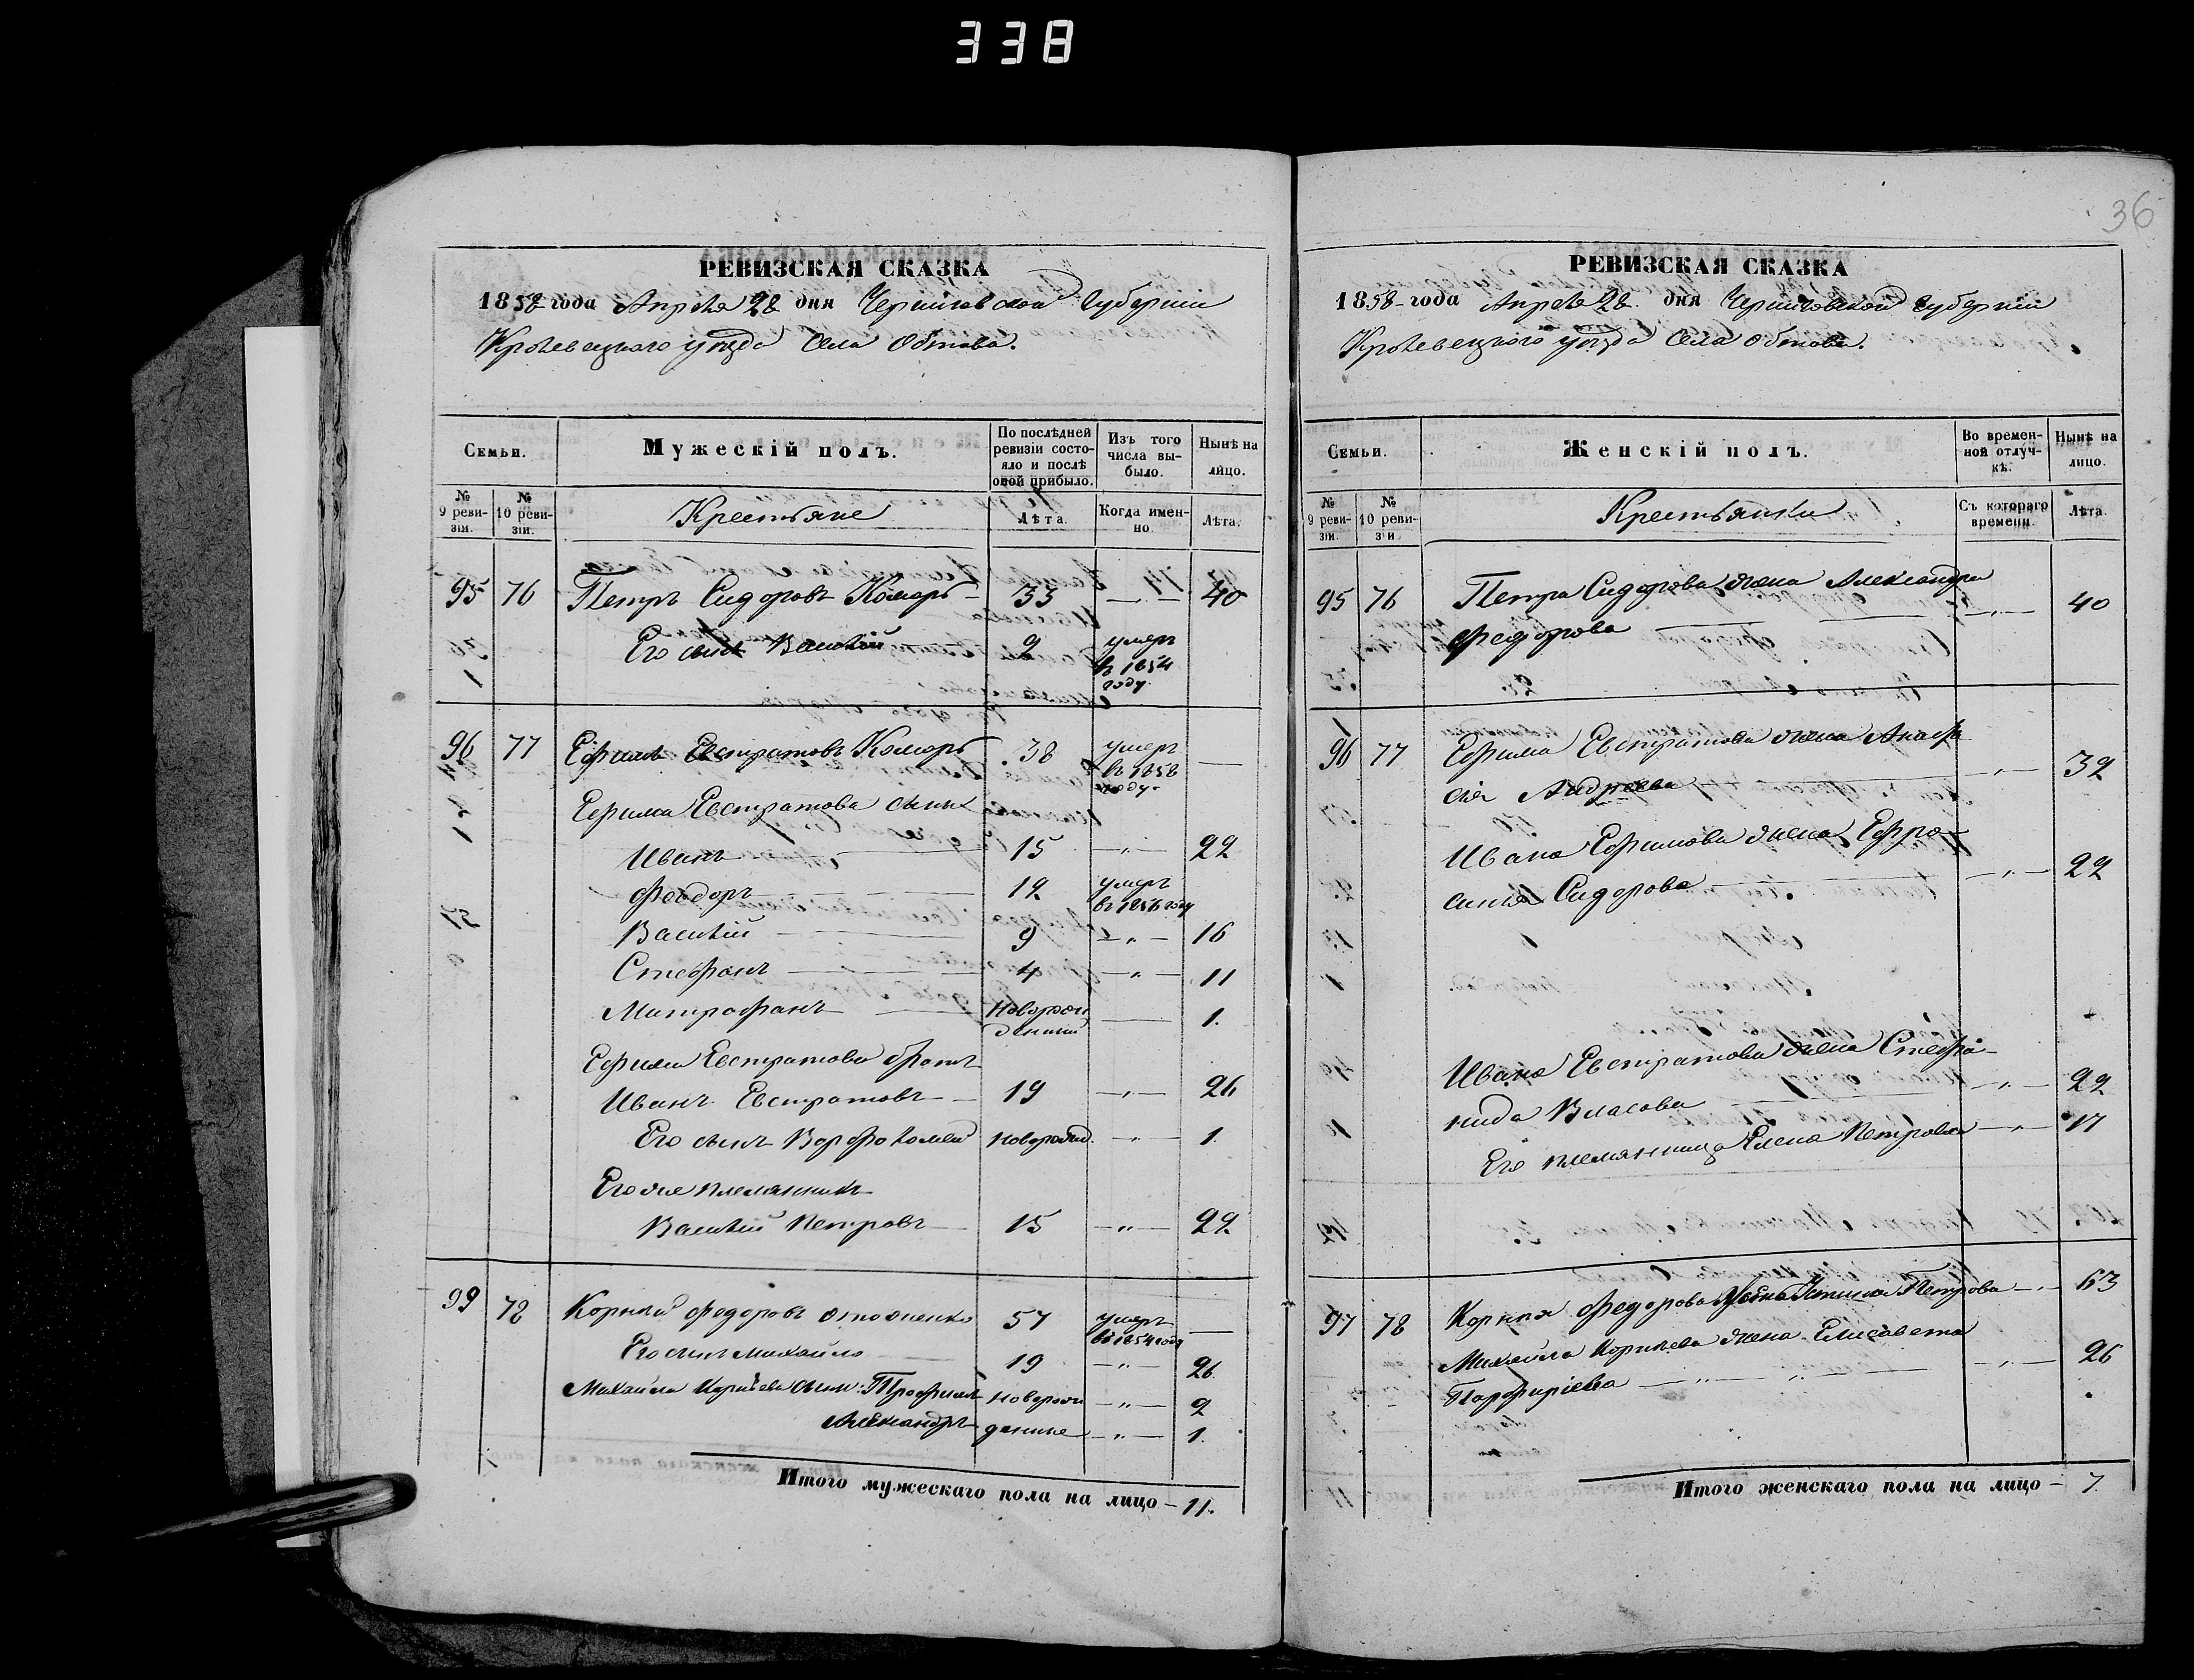 338
36
РЕВИЗСКАЯ СКАЗКА
1858 года Апреля 28 дня Черниговской губернии
Кролевецкаго уезда Села Обтова.
Семьи. Мужескій полъ. По послѣдней ревизіи состояло и послѣ оной прибыло. Изъ того числа выбыло. Нынѣ на лицо.
№ 9 ревизіи. № 10 ревизіи. Крестьяне Лѣта. Когда именно. Лѣта.
95 76 Петръ Сидоровъ Комаръ 33 — 40
Его сынъ Василій 9 умеръ
въ 1854
году.
96 77 Ефимъ Евстратовъ Комаръ 38 умеръ —
въ 1858
году.
Ефима Евстратова сыны
Иванъ 15 — „ — 22
Феодоръ 12 умеръ
въ 1856 году
Василій 9 — „ — 16
Стефанъ 4 — „ — 11
Митрофанъ Новорож — 1.
денный
Ефима Евстратова братъ
Иванъ Евстратовъ 19 — „ — 26
Его сынъ Варфоломей новорожд. — „ — 1.
Его же племянникъ
Василій Петровъ 15 — „ — 22
99 78 Корней Федоровъ 57 умеръ —
въ 1854 году
Его сынъ Михайло 19 — „ — 26
Михайла Корнѣева сыны: Трофимъ новорож — „ — 2
Александръ денные — „ — 1.
Итого мужескаго пола на лицо — 11.
РЕВИЗСКАЯ СКАЗКА
1858 года Апреля 28 дня Черниговской губернии
Кролевецкаго уезда Села Обтова.
Семьи. Женскій полъ. Во временной отлучкѣ. Нынѣ на лицо.
№ 9 ревизіи. № 10 ревизіи. Крестьянки Съ котораго времени. Лѣта.
95 76 Петра Сидорова жена Александра
Федорова — „ — 40
96 77 Ефима Евстратова жена Анаста
сія Андреева — „ — 32
Ивана Ефимова жена Ефро-
синія Сидорова — „ — 22
Ивана Евстратова жена Стефа-
нида Власова — „ — 22
Его племянница Елена Петровна — „ — 17
97 78 Корнея Федорова жена Устинья Петрова — „ — 63
Михайла Корнеева жена Елисавета
Парфиріева — „ — 26
Итого женскаго пола на лицо — 7